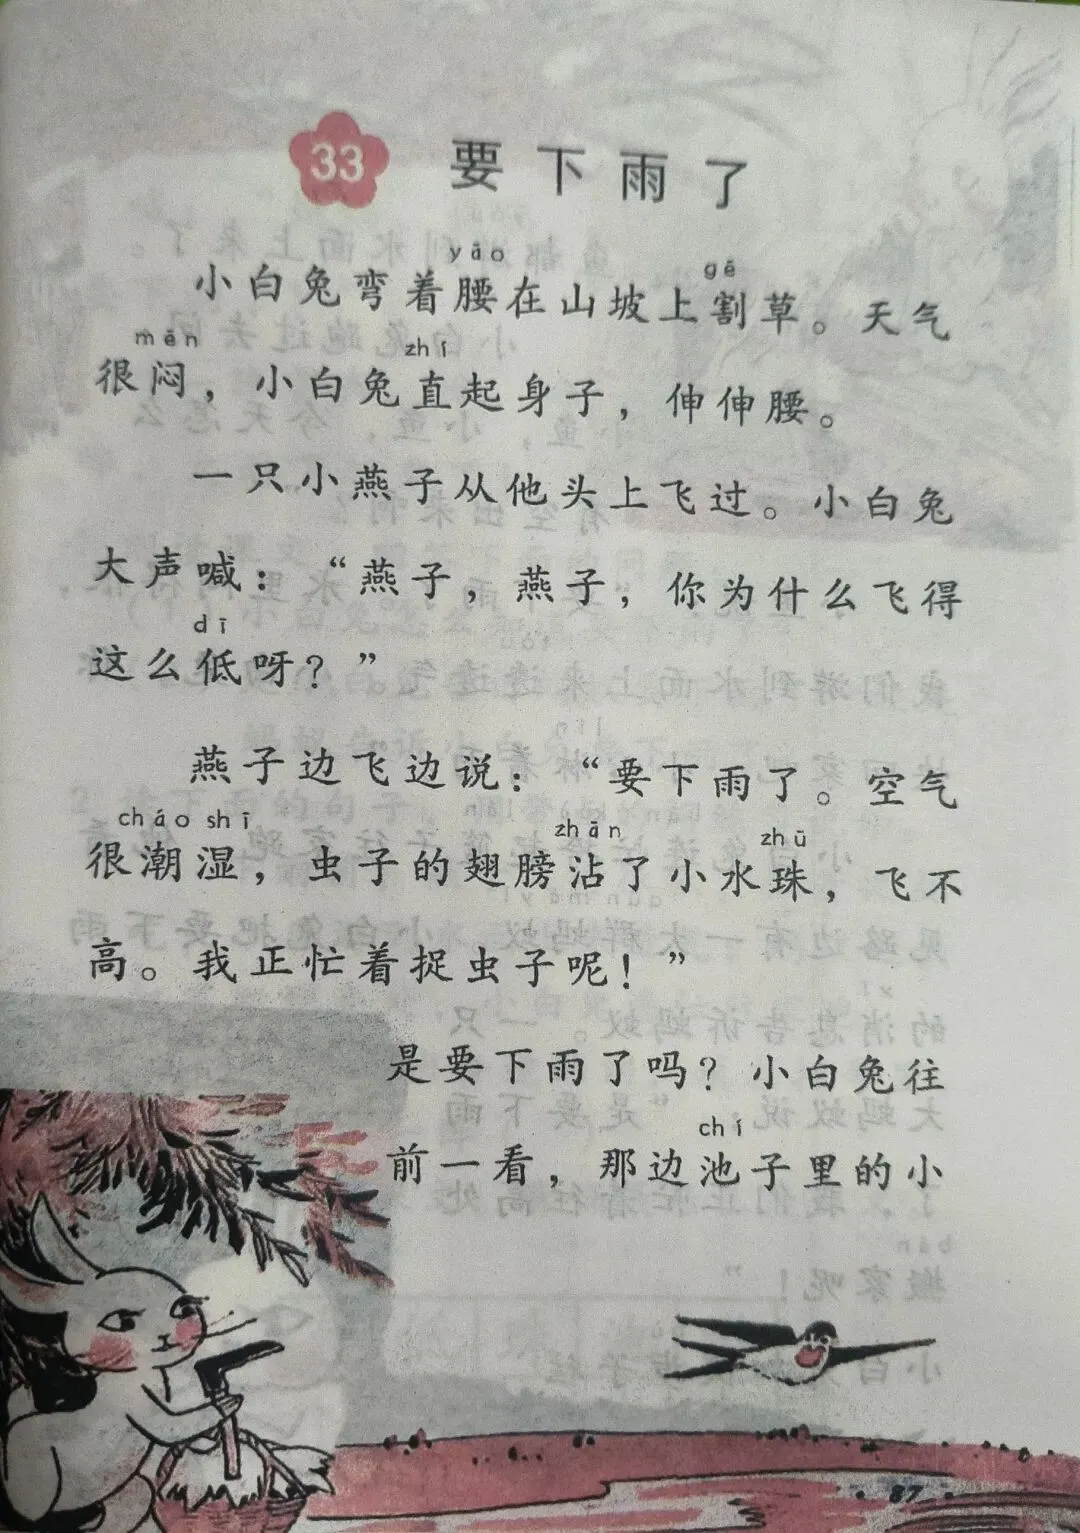 33 要下雨了
yāo gē
小白兔弯着腰在山坡上割草。天气
mēn zhí
很闷，小白兔直起身子，伸伸腰。
一只小燕子从他头上飞过。小白兔
大声喊：“燕子，燕子，你为什么飞得
dī
这么低呀？”
燕子边飞边说：“要下雨了。空气
cháo shī zhān zhū
很潮湿，虫子的翅膀沾了小水珠，飞不
高。我正忙着捉虫子呢！”
是要下雨了吗？小白兔往
chí
前一看，那边池子里的小
87